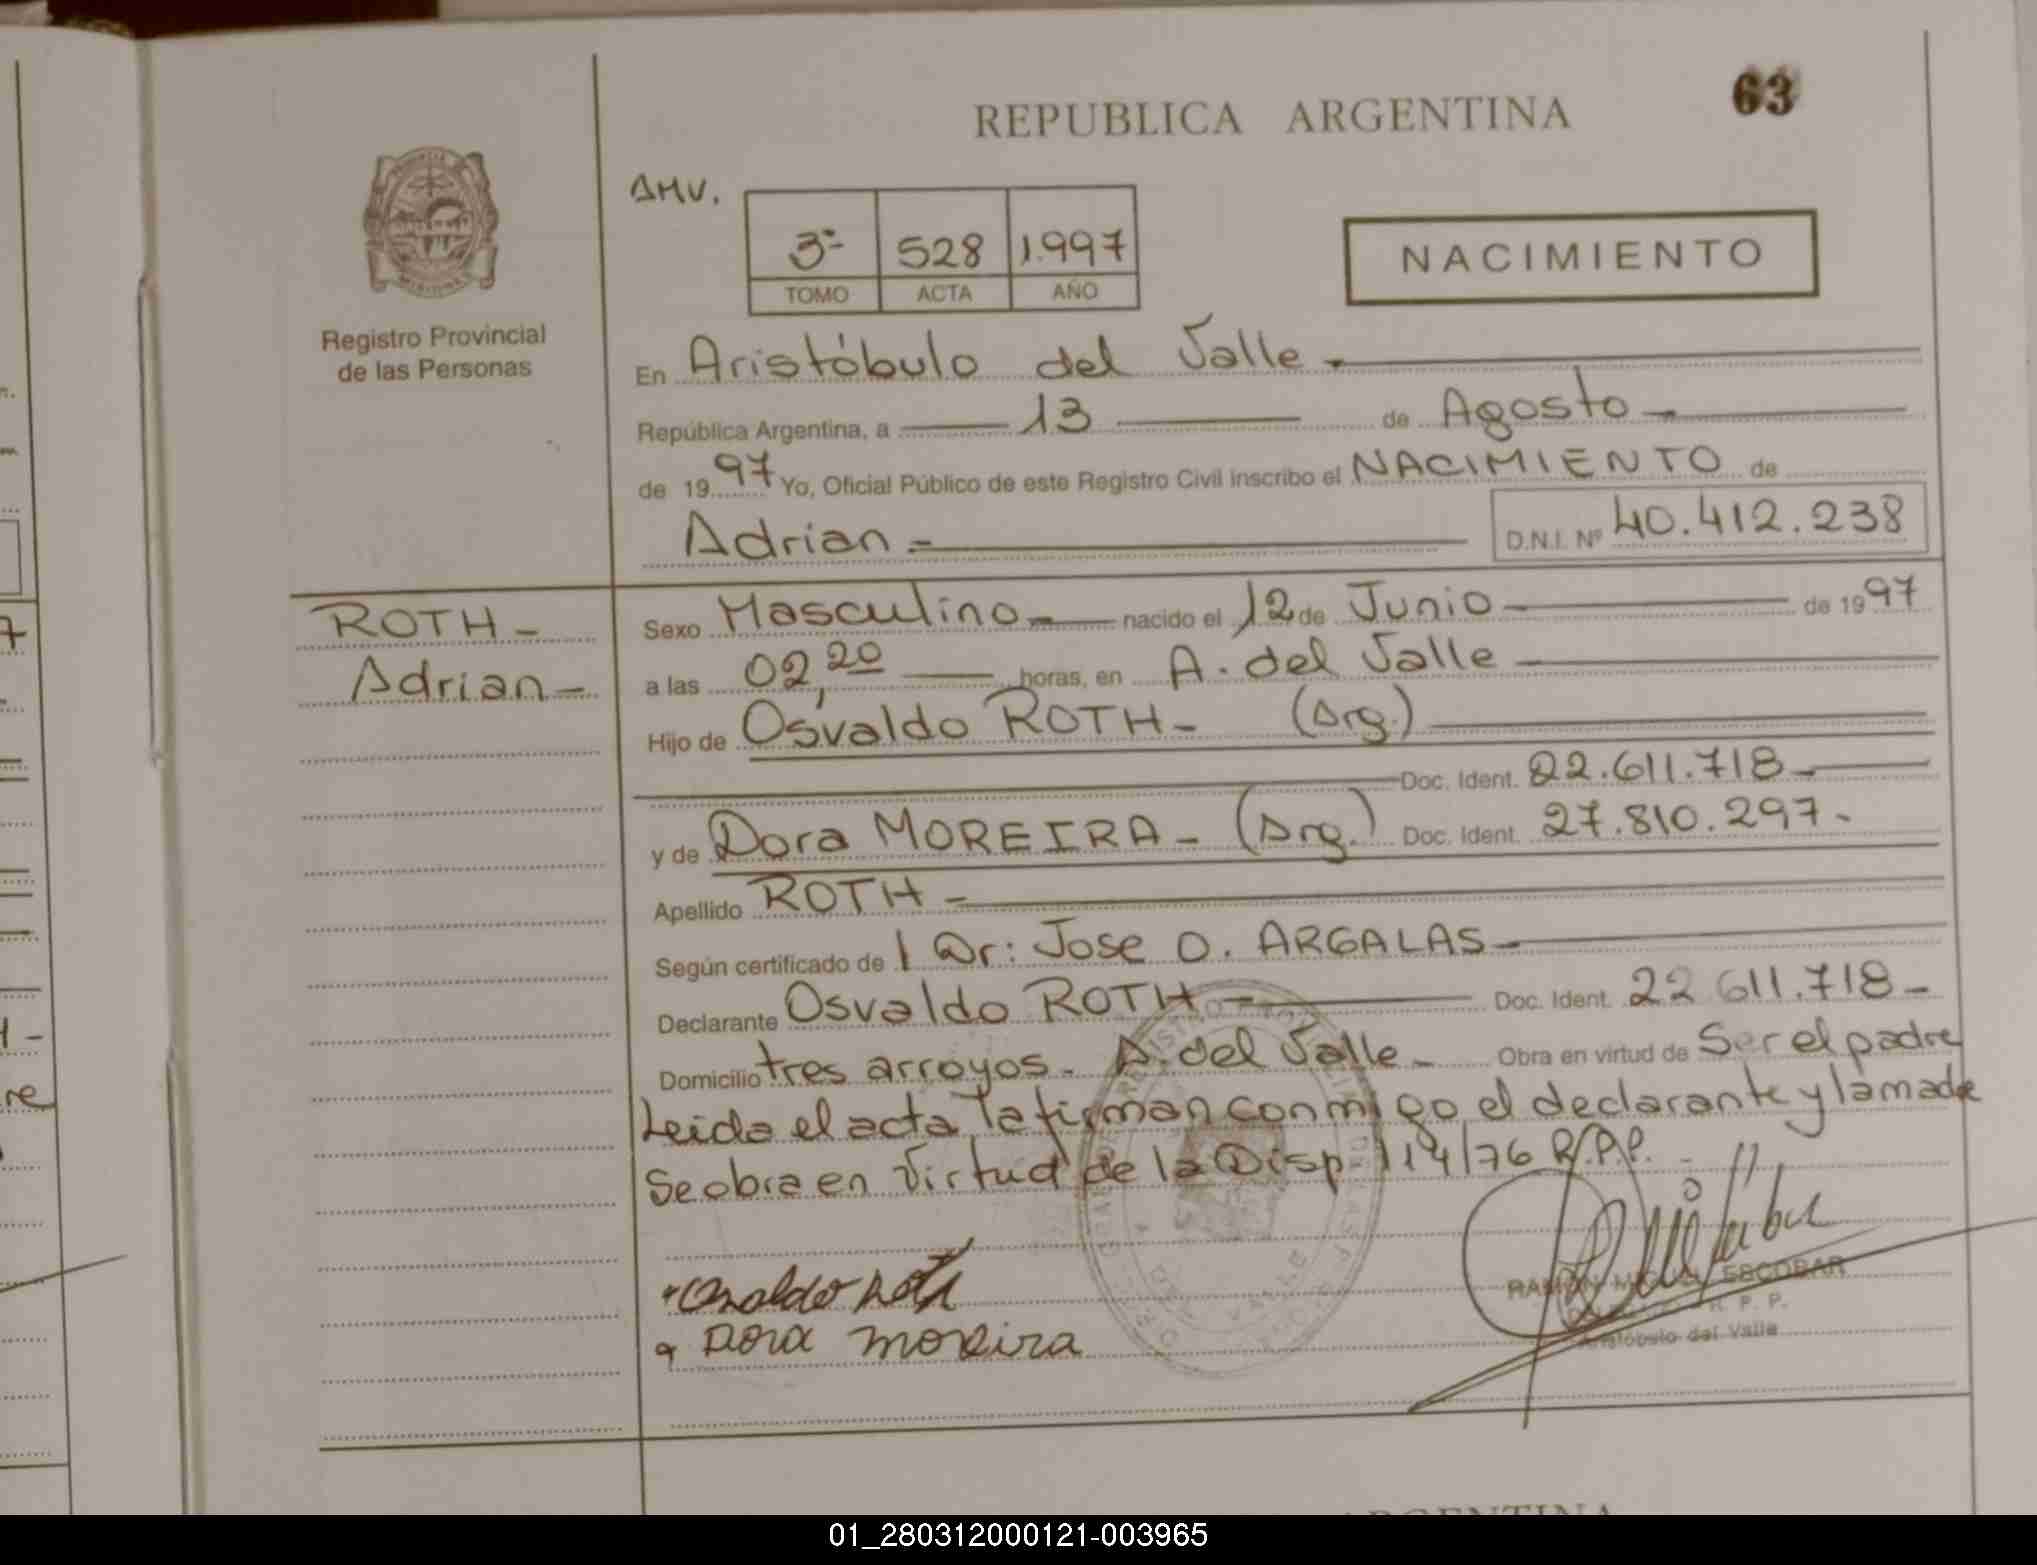 REPUBLICA ARGENTINA
63
AMV.
3º 528 1.997
TOMO ACTA AÑO
NACIMIENTO
Registro Provincial
de las Personas
En Aristóbulo del Valle.-
República Argentina, a 13 de Agosto-
de 1997 Yo, Oficial Público de este Registro Civil inscribo el NACIMIENTO de
Adrian.- D.N.I. Nº 40.412.238
ROTH-
Adrian-
Sexo Masculino- nacido el 12 de Junio- de 1997
a las 02,20 horas, en A. del Valle-
Hijo de Osvaldo ROTH- (Arg.)
Doc. Ident. 22.611.718-
y de Dora MOREIRA- (Arg.) Doc. Ident. 27.810.297-
Apellido ROTH-
Según certificado de l Dr: Jose O. ARGALAS-
Declarante Osvaldo ROTH- Doc. Ident. 22 611.718-
Domicilio tres arroyos- A. del Valle- Obra en virtud de Ser el padre
Leida el acta, la firman conmigo el declarante y la madre
Se obra en virtud de la Disp. 114/76 R.P.P.-
Osvaldo Roth
Dora moreira
RAMON MIGUEL ESCOBAR
R. P. P.
Aristóbulo del Valle
ARGENTINA
01_280312000121-003965